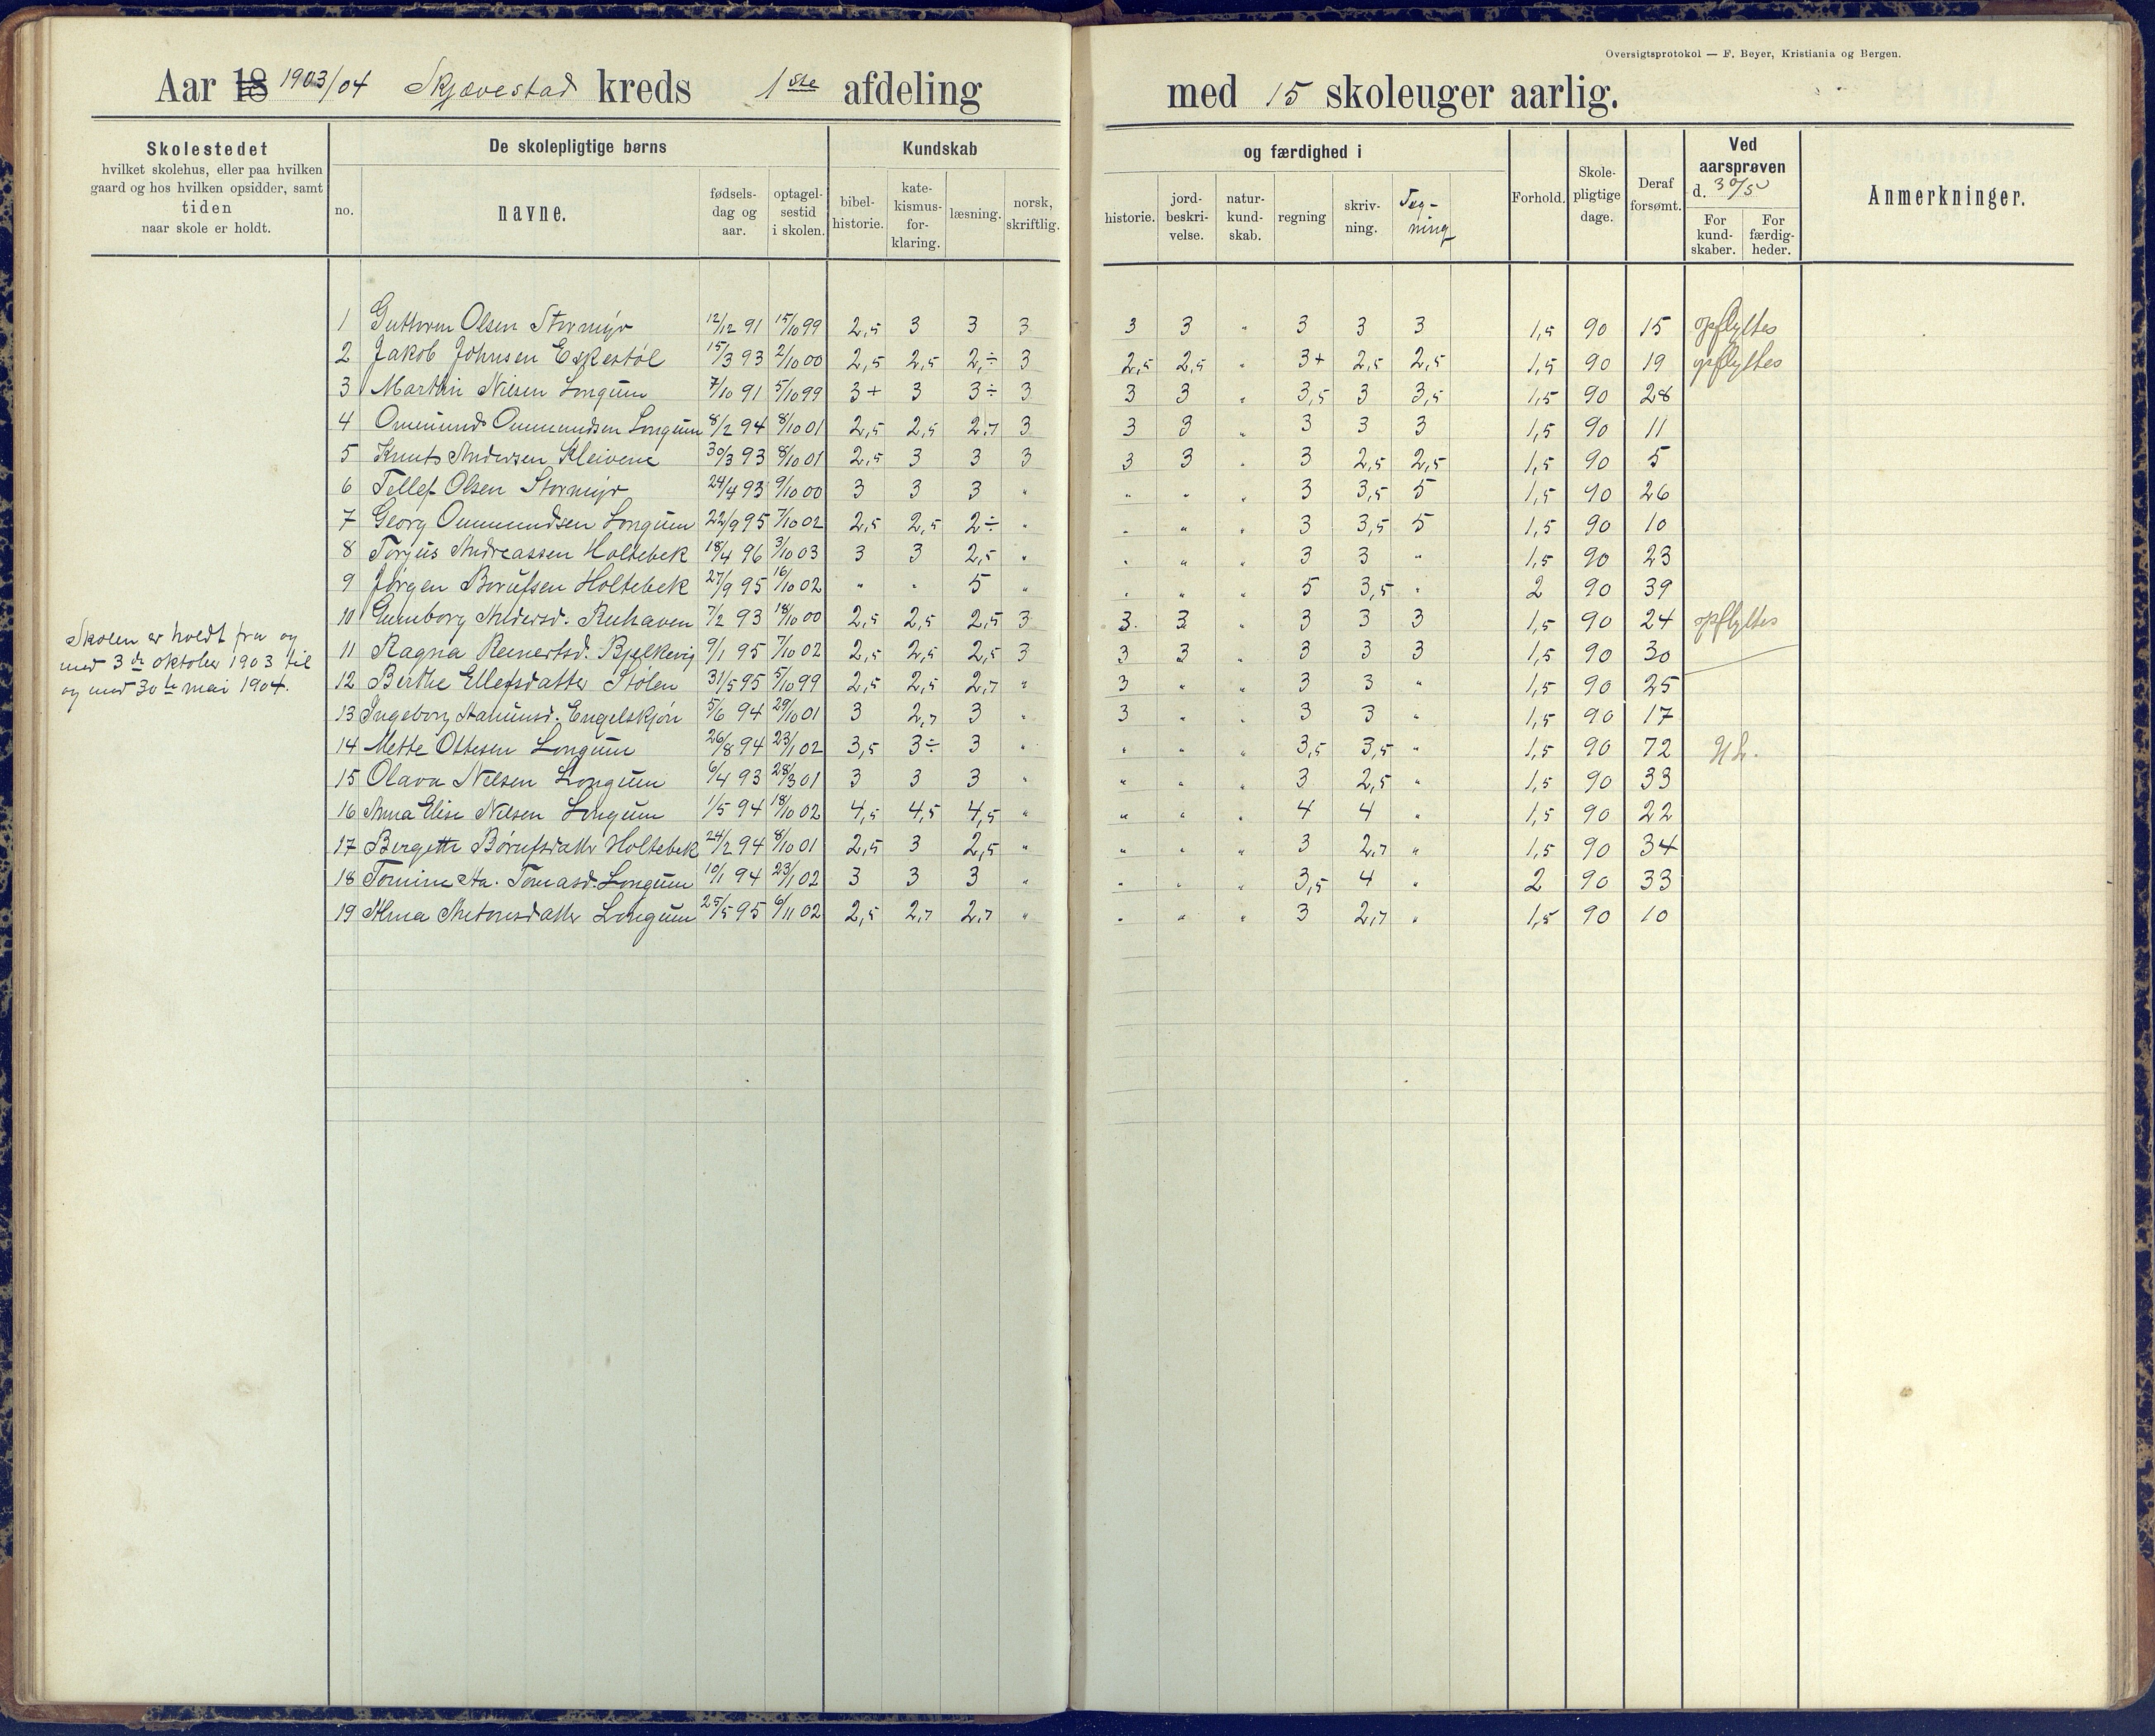 Oversigtsprotokol — F. Beyer, Kristiania og Bergen.
Aar 18 1903/04 Skjævestad kreds 1ste afdeling med 15 skoleuger aarlig.
Skolestedet
hvilket skolehus, eller paa hvilken
gaard og hos hvilken opsidder, samt
tiden
naar skole er holdt.
De skolepligtige børns
no.
navne.
fødsels-
dag og
aar.
optagel-
sestid
i skolen.
Kundskab
bibel-
historie.
kate-
kismus-
for-
klaring.
læsning.
norsk,
skriftlig.
og færdighed i
historie.
jord-
beskri-
velse.
natur-
kund-
skab.
regning
skriv-
ning.
Teg-
ning
Forhold.
Skole-
pligtige
dage.
Deraf
forsømt.
Ved
aarsprøven
d. 30/5
For
kund-
skaber.
For
færdig-
heder.
Anmerkninger.
1 Guttorm Olsen Stormyr 12/12 91 15/10 99 2,5 3 3 3 3 3 " 3 3 3 1,5 90 15 opflyttes
2 Jakob Johnsen Eskestøl 15/3 93 2/10 00 2,5 2,5 2,÷ 3 2,5 2,5 " 3+ 2,5 2,5 1,5 90 19 opflyttes
3 Martin Nilsen Longum 7/10 91 5/10 99 3+ 3 3÷ 3 3 3 " 3,5 3 3,5 1,5 90 28
4 Ommund Ommundsen Longum 8/2 94 8/10 01 2,5 2,5 2,7 3 3 3 " 3 3 3 1,5 90 11
5 Knut Andersen Kleivene 30/3 93 8/10 01 2,5 3 3 3 3 3 " 3 2,5 2,5 1,5 90 5
6 Tellef Olsen Stormyr 24/4 93 9/10 00 3 3 3 " " " " 3 3,5 5 1,5 90 26
7 Georg Ommundsen Longum 22/9 95 7/10 02 2,5 2,5 2÷ " " " " 3 3,5 5 1,5 90 10
8 Torjus Andreassen Holtebek 18/4 96 3/10 03 3 3 2,5 " " " " 3 3 " 1,5 90 23
9 Jørgen Børufsen Holtebek 27/9 95 16/10 02 " " 5 " " " " 5 3,5 " 2 90 39
10 Gunborg Andersd. 7/2 93 18/10 00 2,5 2,5 2,5 3 3. 3 " 3 3 3 1,5 90 24 opflyttes
11 Ragna Reinertsd. Bjelkevig 9/1 95 7/10 02 2,5 2,5 2,5 3 3 3 " 3 3 3 1,5 90 30
12 Birthe Ellefsdatter Stølen 31/5 95 5/10 99 2,5 2,5 2,7 " 3 " " 3 3 " 1,5 90 25
13 Ingeborg Engelskjøn 5/6 94 29/10 01 3 2,7 3 " 3 " " 3 3 " 1,5 90 17
14 Mette Ottesen Longum 26/8 94 23/1 02 3,5 3÷ 3 " " " " 3,5 3,5 " 1,5 90 72
15 Olava Nilsen Longum 6/4 93 28/3 01 3 3 3 " " " " 3 2,5 " 1,5 90 33
16 Anna Elise Nilsen Longum 1/5 94 18/10 02 4,5 4,5 4,5 " " " " 4 4 " 1,5 90 22
17 Bergette Børufsdatter Holtebek 24/2 94 8/10 01 2,5 3 2,5 " " " " 3 2,7 " 1,5 90 34
18 Tomine Aa. Tomasd. Longum 10/1 94 23/1 02 3 3 3 " " " " 3,5 4 " 2 90 33
19 Alma Antonsdatter Longum 25/5 95 6/11 02 2,5 2,7 2,7 " " " " 3 2,7 " 1,5 90 10
Skolen er holdt fra og
med 3de oktober 1903 til
og med 30te mai 1904.